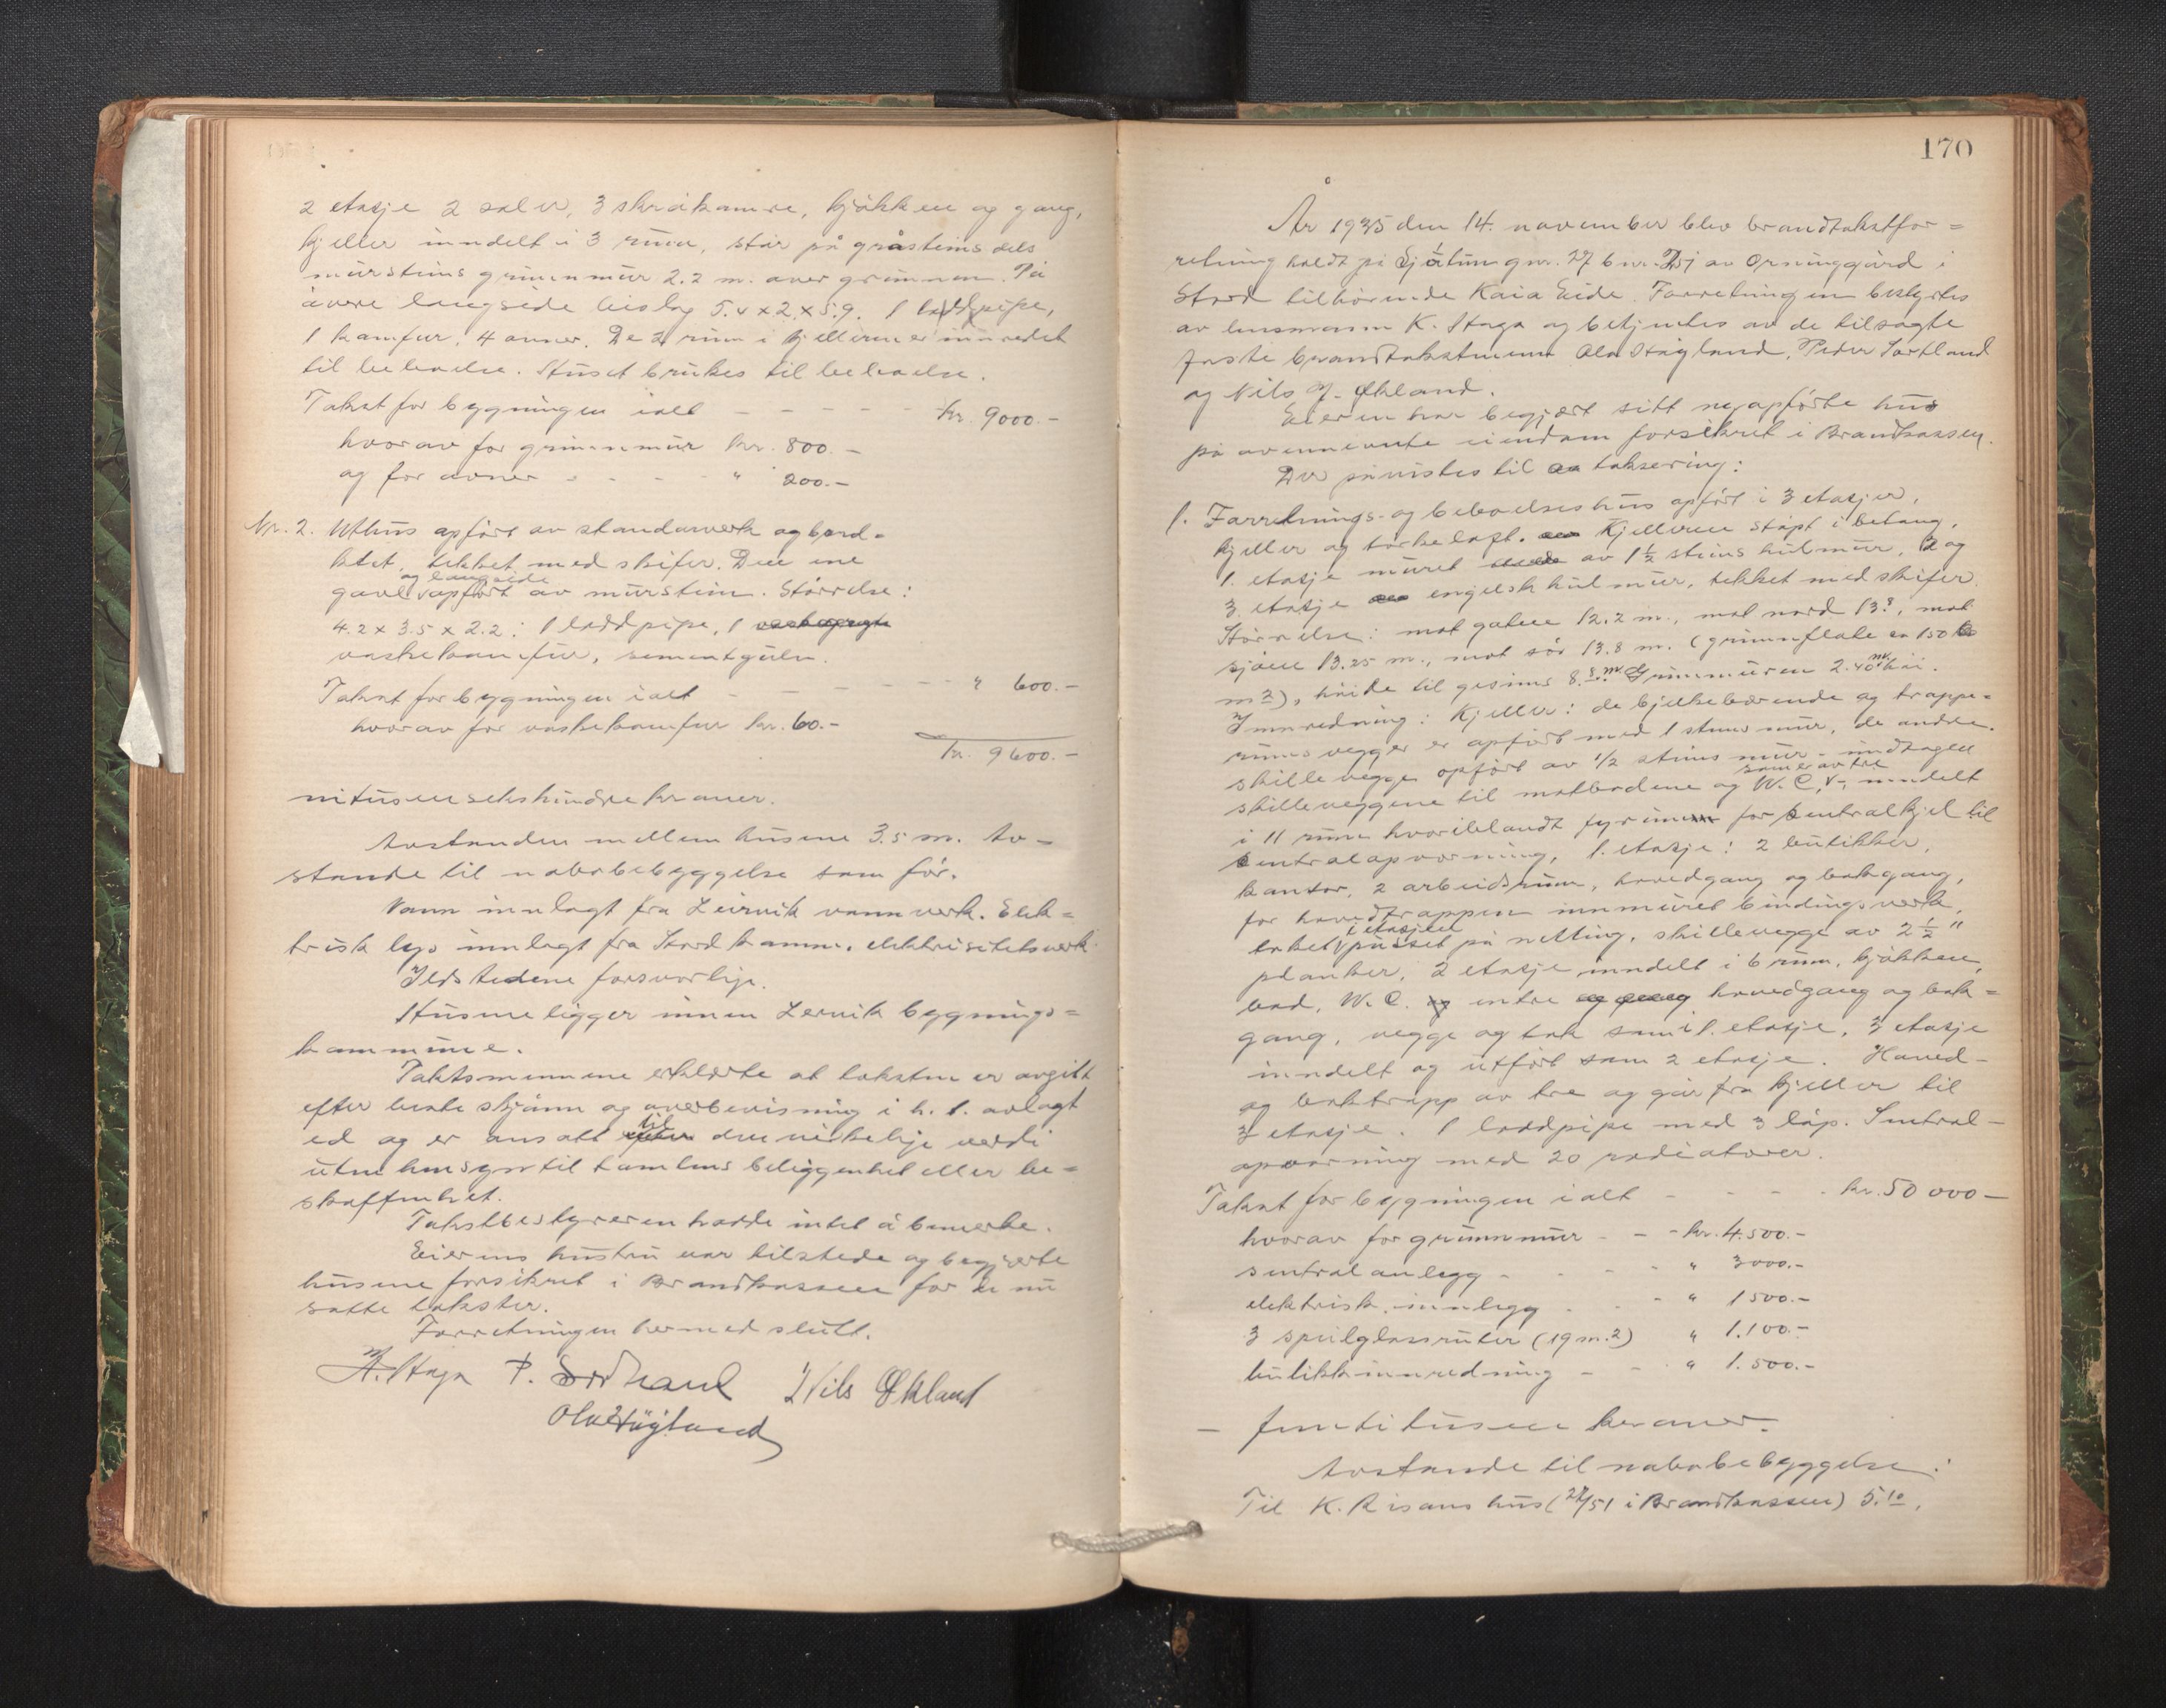 2 etasje 2 saler, 3 skråkamre, kjøkken og gang,
kjeller inndelt i 3 rum, står på gråsteins dels
mursteins grunnmur 2.2 m. over grunnen. På
øvre langside bislag 5.4 x 2 x 5.9. 1 loddpipe,
1 kamfur, 4 ovner. De 2 rum i kjelleren er innredet
til beboelse. Huset brukes til beboelse.
Takst for bygningen ialt - - - - - kr. 9000.-
hvorav for grunnmur kr. 800.-
og for ovner - - - - " 200.-
Nr. 2. Uthus opført av standarverk og bord-
ktet, tekket med skifer. Den ene
og langside
gavl opført av murstein. Størrelse:
4.2 x 3.5 x 2.2: 1 loddpipe, 1
vaskekamfur, sementgulv.
Takst for bygningen ialt - - - - - " 600.-
hvorav for vaskekamfur kr. 60.-
Kr. 9600.-
nitusensekshundre kroner.
Avstanden mellem husene 3.5 m. Av-
stande til nabobebyggelse som før.
Vann innlagt fra Leirvik vannverk. Elek-
trisk lys innlagt fra Stord komm. elektrisitetsverk.
Ildstedene forsvarlige.
Husene ligger innen Lervik bygnings-
kommune.
Taktsmennene erklærte at taksten er avgitt
efter beste skjønn og overbevisning i h. t. avlagt
til
ed og er ansatt efter den virkelige verdi
uten hensyn til tomtens beliggenhet eller be-
skaffenhet.
Takstbestyreren hadde intet å bemerke.
Eierens hustru var tilstede og begjærte
husene forsikret i Brandkassen for de nu
satte takster.
Forretningen hermed slutt.
K. Haga P. Sortland Nils Økland
Ola Høgland
170
År 1935 den 14. november blev brandtakstfor-
retning holdt på Sjøtun gnr. 27 bnr. av Orninggård i
Stord tilhørende Kaia Eide. Forretningen bestyrtes
av lensmann K. Haga og betjentes av de tilsagte
faste brandtakstmenn Ola Høgland, Peder Sortland
og Nils J. Økland.
Eieren har begjært sitt nyopførte hus
på ovennevnte eiendom forsikret i Brandkassen.
Der påvistes til taksering:
1. Forretnings- og beboelseshus opført i 3 etasjer,
kjeller og tørkeloft. Kjelleren støpt i betong,
1. etasje muret av 1½ steins hulmur, 2 og
3. etasje engelsk hulmur, tekket med skifer.
Størrelse: mot gaten 12.2 m., mot nord 13.8, mot
sjøen 13.25 m., mot sør 13.8 m. (grunnflate ca 150
m2), høide til gesims 8.8 m. Grunnmuren 2.40 m. høi.
Innredning: Kjeller: de bjelkebærende og trappe-
rums vegger er opført med 1 steins mur, de andre
skillevegger opført av 1/2 steins mur - undtagen
som er av tre
skilleveggene til matbodene og W.C. -, inndelt
i 11 rum hvoriblandt fyrrum for sentralkjel til
sentralopvarming, 1. etasje: 2 butikker,
kontor, 2 arbeidsrum, hovedgang og bakgang,
for hovedtrappen innmuret bindingsverk,
i etasjen
taket pusset på netting, skillevegge av 2½ "
planker, 2 etasje inndelt i 6 rum, kjøkken,
bad, W.C. og entre og gang hovedgang og bak-
gang, vegge og tak som i 1. etasje, 3 etasje
inndelt og utført som 2 etasje. Hoved-
og baktrapp av tre og går fra kjeller til
3 etasje. 1 loddpipe med 3 løp. Sentral-
opvarming med 20 radiatorer.
Takst for bygningen ialt - - - - kr. 50 000 -
hvorav for grunnmur - - - kr. 4.500.-
sentralanlegg - - - - " 3000.-
elektrisk innlegg - - - " 1500.-
3 speilglassruter (19 m.2) " 1.100.-
butikkinnredning - - - " 1.500.-
- femtitusen kroner -
Avstande til nabobebyggelse:
Til K. Risans hus (27/51 i Brandkassen) 5.10,